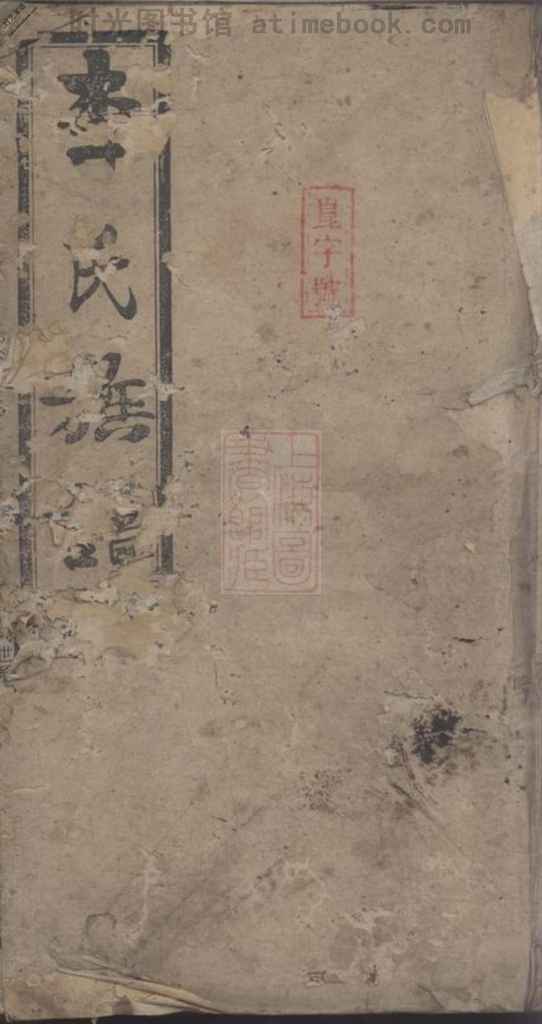 时光图书馆 atimebook.com
李氏族譜
字號
上海圖
書館藏